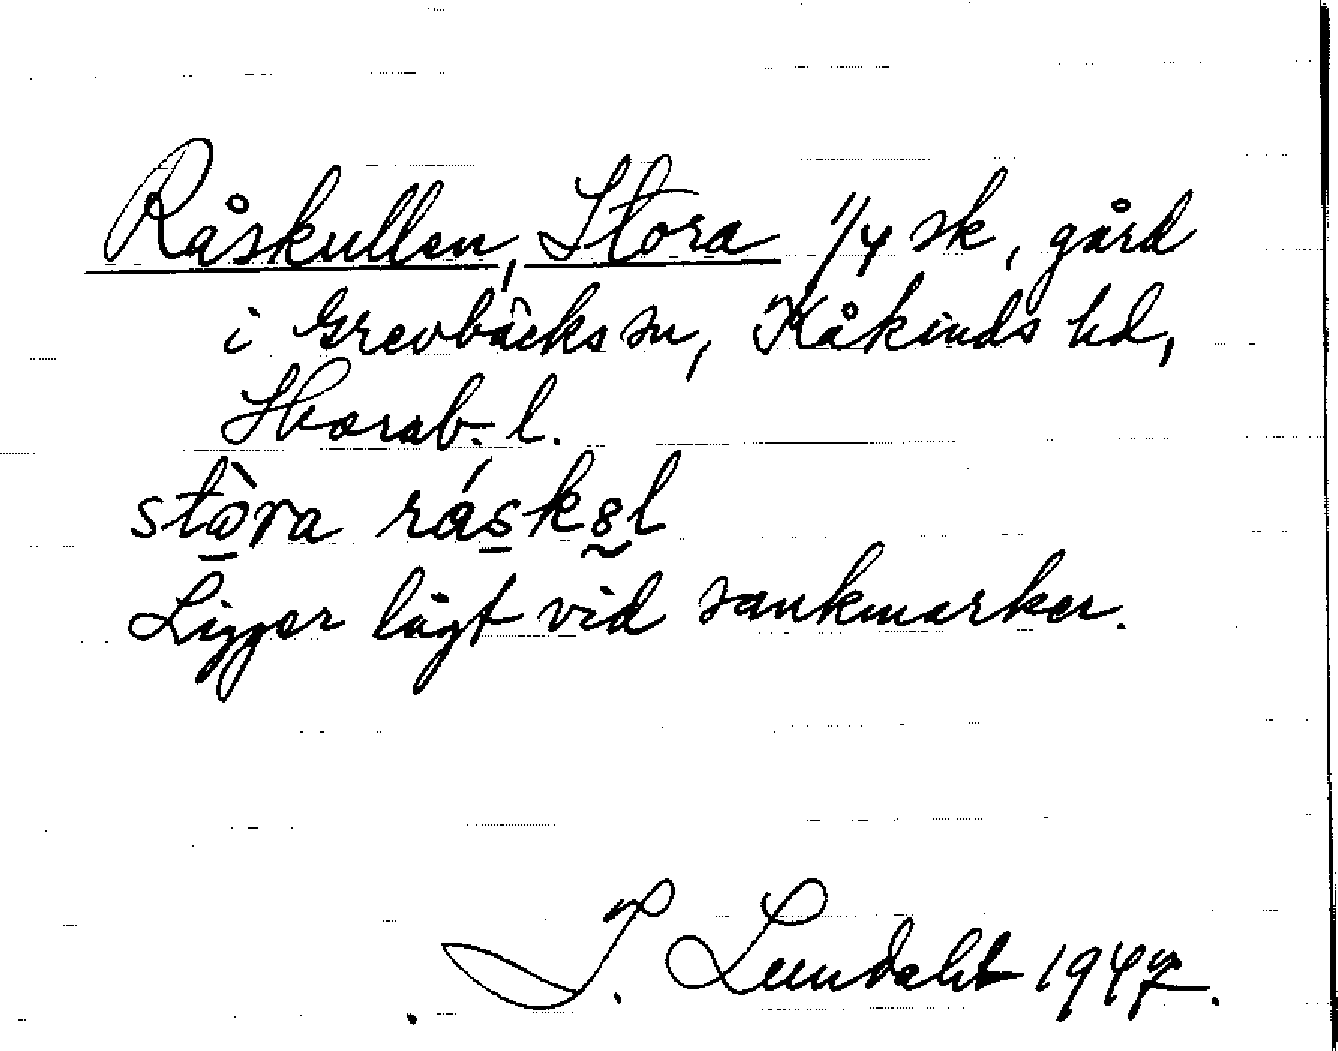 Råskullen, Stora 1/4 sk, gård
i Grevbäcks sn, Kåkinds hd,
Skarab. l.
stòra rásk8l
Ligger lågt vid sankmarker.
I. Lundahl 1947.